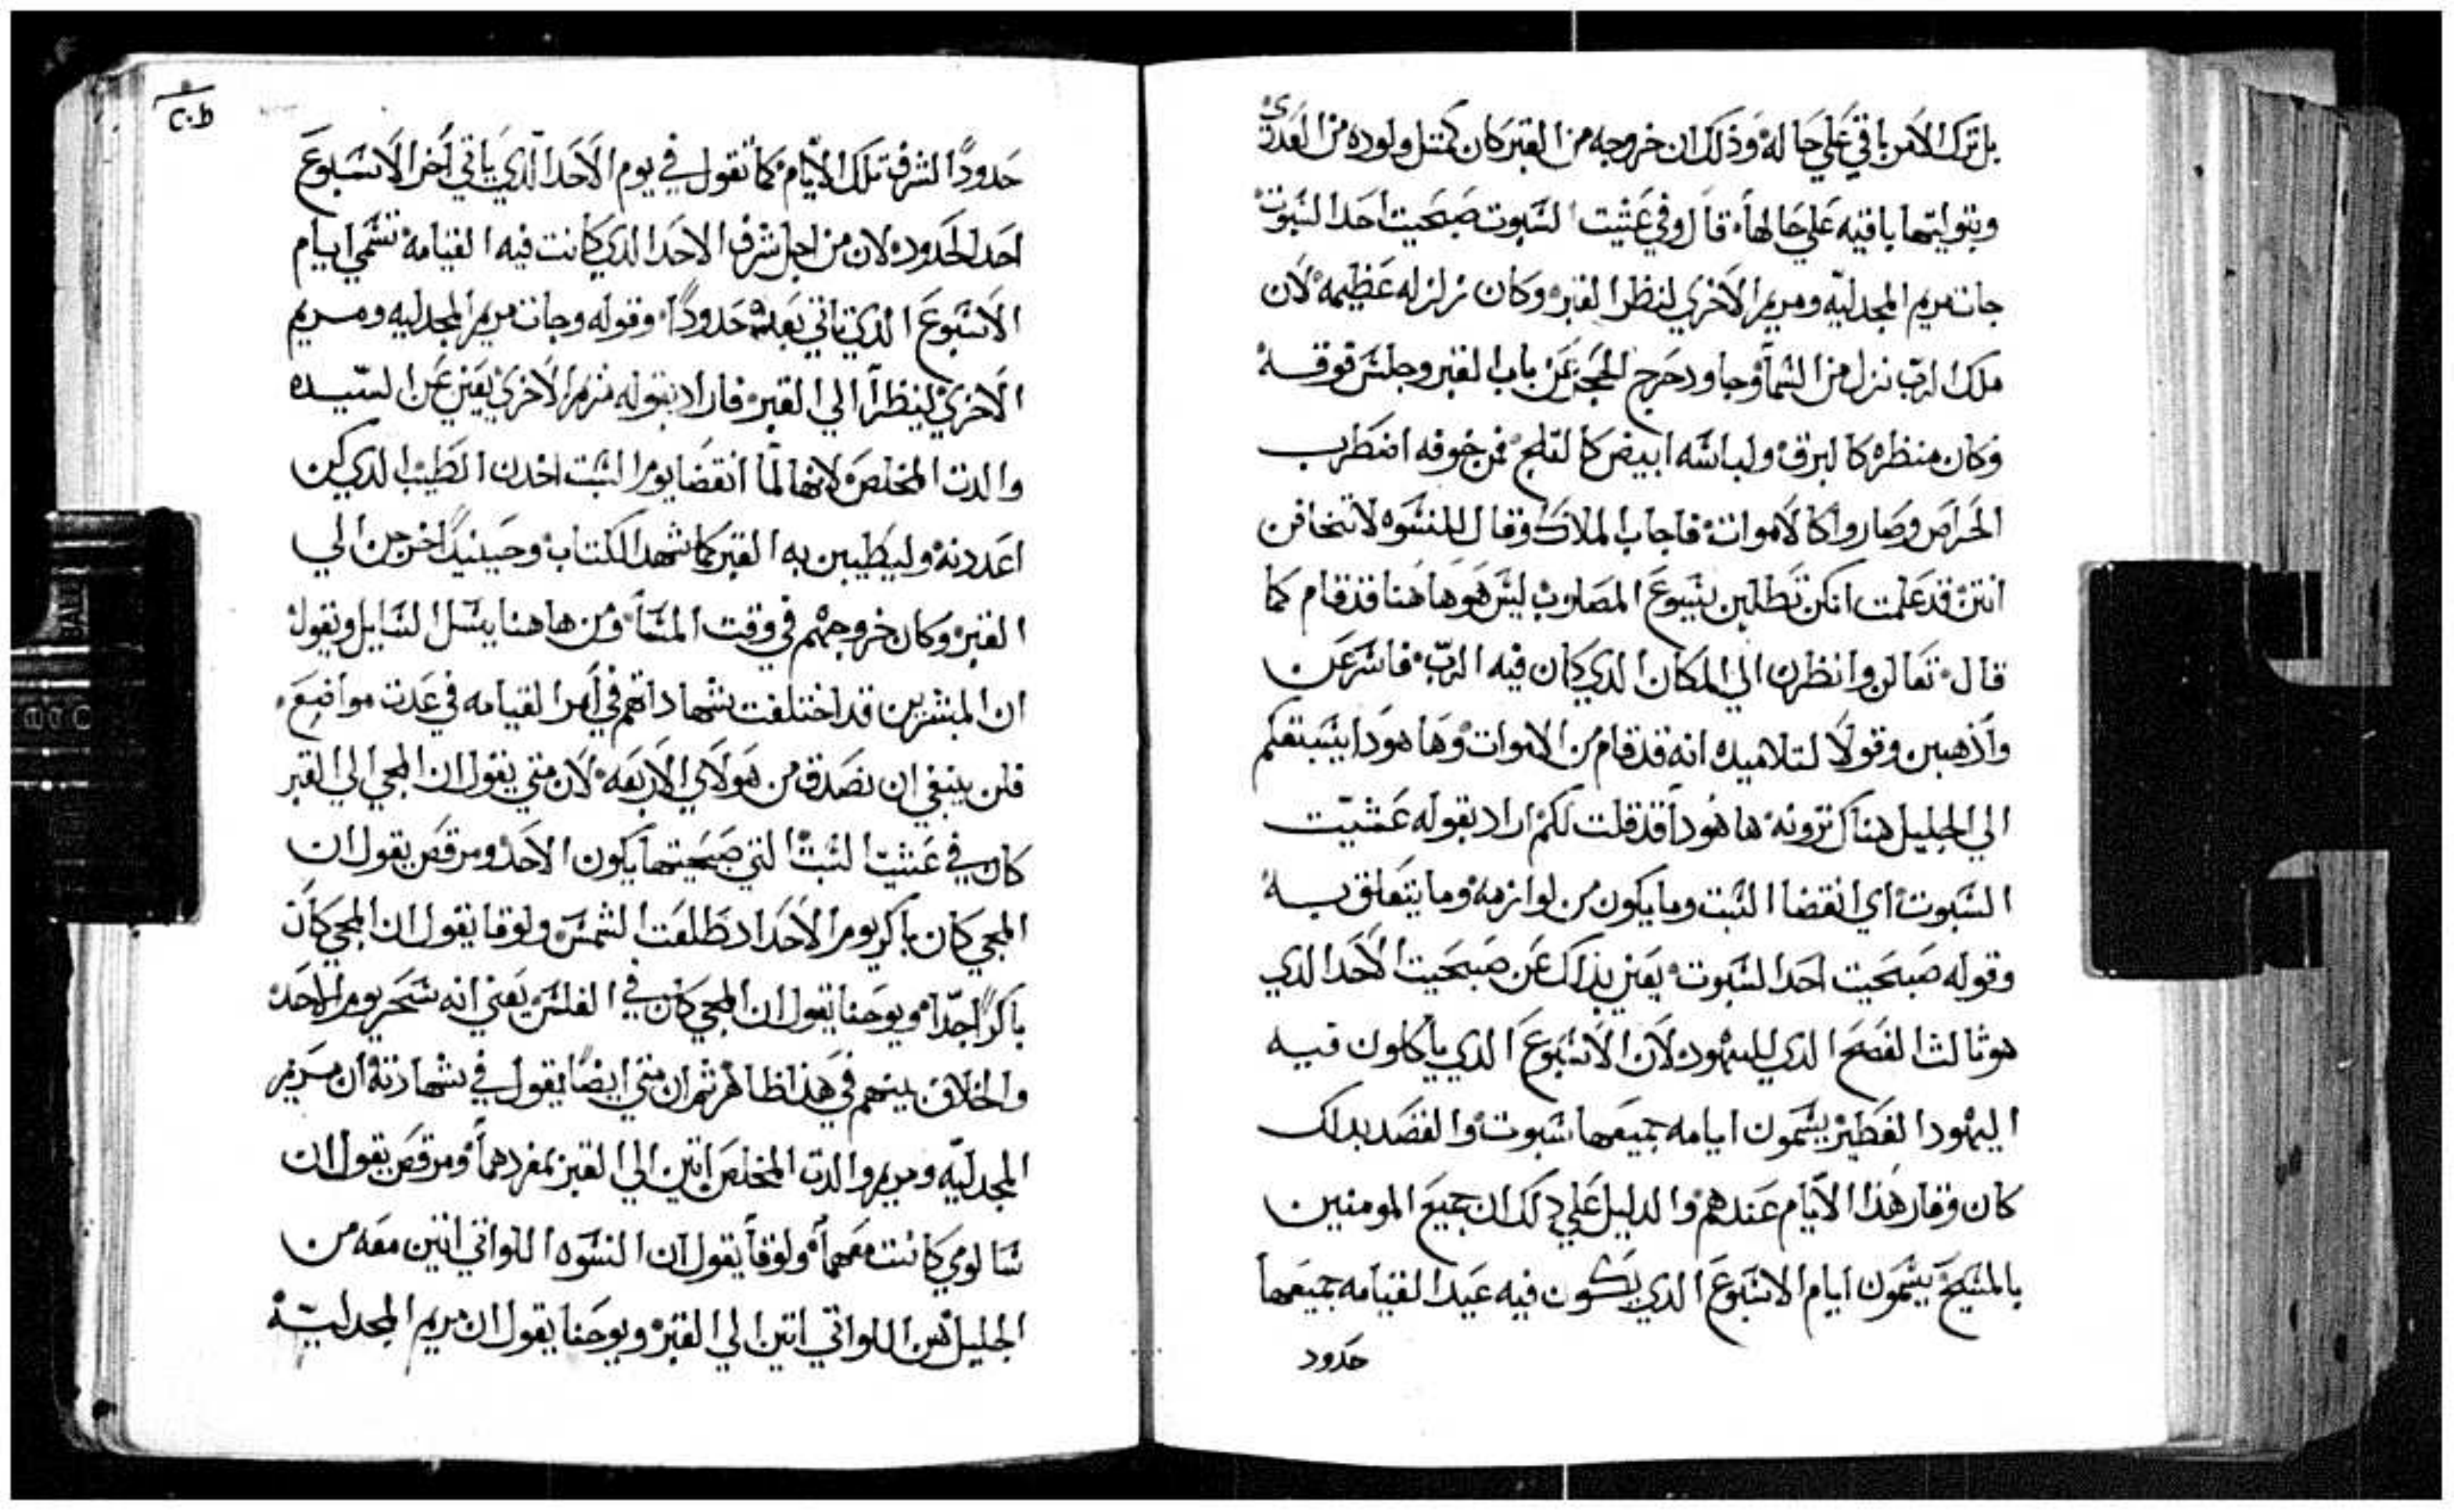 بل ترك الامر باقي علي حاله وذلك ان خروجه من القبر كان كمتل ولوده من العدري
وبتوليتها باقيه علي حالها قال وفي عشيت السبوت صبحيت احد السبوت
جات مريم المجدليه ومريم الاخري لننظر القبر وكان زلزله عظيمه لان
ملاك الرب نزل من السما وجا ودحرج الحجر عن باب القبر وجلس فوقه
وكان منظره كالبرق ولباسه ابيض كالتلج فمن خوفه اضطرب
الحراس وصاروا كالاموات فاجاب الملاك وقال للنسوه لا تخافن
انتن قد علمت انكن تطلبن يسوع المصلوب ليس هو هاهنا قد قام كما
قال تعالن وانظرن الي المكان الدي كان فيه الرب فاسرعن
واذهبن وقولا لتلاميده انه قد قام من الاموات وها هودا يسبقكم
الي الجليل هناك ترونه ها هودا قد قلت لكم اراد بقوله عشيت
السبوت اي انقضا السبت وما يكون من لوازمه وما يتعلق به
وقوله صبحيت احد السبوت يعني بداك عن صبحيت الاحد الدي
هو تالت الفصح الدي لليهود لان الاسبوع الدي ياكلون فيه
اليهود الفطير يسمون ايامه جميعها سبوت والقصد بداك
كان وقار هذا الايام عندهم والدليل علي دلك ان جميع المومنين
بالمسيح يسمون ايام الاسبوع الدي يكون فيه عيد القيامه جميعها
حدود
٢٠٥
حدودا لشرف تلك الايام كما نقول في يوم الاحد الدي ياتي اخر الاسبوع
احد الحدود لان من اجل شرف الاحد الدي كانت فيه القيامه تسمي ايام
الاسبوع الدي تاتي بعده حدودا وقوله وجات مريم المجدليه ومريم
الاخري لينظرا الي القبر فاراد بقوله مريم الاخري يعني عن السيده
والدت المخلص لانها لما انقضا يوم السبت اخدن الطيب الدي كن
اعددنه وليطيبن به القبر كما شهد الكتاب وحينيدا خرجن الي
القبر وكان خروجهم في وقت المسا ومن هاهنا يسل السايل ويقول
ان المبشرين قد اختلفت شهاداتهم في امر القيامه في عدت مواضع
فلمن ينبغي ان نصدق من هولاي الاربعه لان متي يقول ان المجي الي القبر
كان في عشيت السبت التي صبحيتها يكون الاحد ومرقص يقول ان
المجي كان باكر يوم الاحد اد طلعت الشمس ولوقا يقول ان المجي كان
باكرا جدا ويوحنا يقول ان المجي كان في الغلس يعني انه سحر يوم الاحد
والخلاف بينهم في هذا ظاهر تم ان متي ايضا يقول في شهادته ان مريم
المجدليه ومريم والدت المخلص اتين الي القبر بمفردهما ومرقص يقول ان
سالومي كانت معهما ولوقا يقول ان النسوه اللواتي اتين معه من
الجليل هن اللواتي اتين الي القبر ويوحنا يقول ان مريم المجدليه